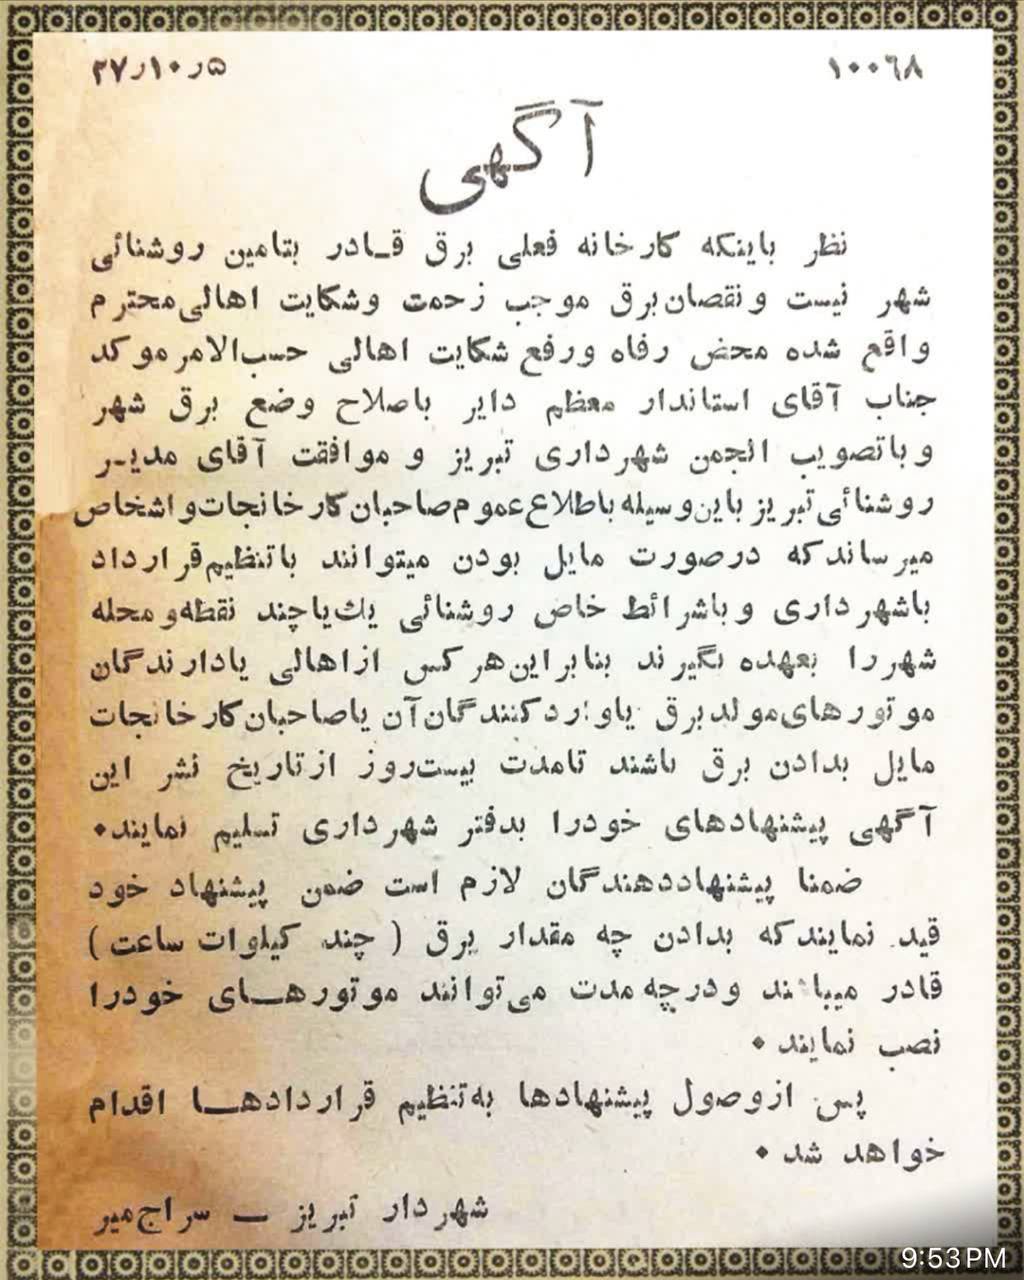 ۱۰۰٦۸
۲۷ر۱۰ر۵
آگهی
نظر باینکه کارخانه فعلی برق قـادر بتامین روشنائی
شهر نیست و نقصان برق موجب زحمت و شکایت اهالی محترم
واقع شده محض رفاه ورفع شکایت اهالی حسب‌الامر موکد
جناب آقای استاندار معظم دایر باصلاح وضع برق شهر
وباتصویب انجمن شهرداری تبریز و موافقت آقای مدیـر
روشنائی تبریز باین‌وسیله باطلاع عموم صاحبان کارخانجات و اشخاص
میرساند که درصورت مایل بودن میتوانند باتنظیم قرارداد
باشهرداری وباشرائط خاص روشنائی یك یا چند نقطه و محله
شهر را بعهده بگیرند بنابراین هر کس از اهالی یا دارندگان
موتورهای مولد برق یا وارد کنندگان آن یا صاحبان کارخانجات
مایل بدادن برق باشند تامدت بیست روز از تاریخ نشر این
آگهی پیشنهادهای خودرا بدفتر شهرداری تسلیم نمایند.
ضمنا پیشنهاددهندگان لازم است ضمن پیشنهاد خود
قید نمایند که بدادن چه مقدار برق ( چند کیلوات ساعت )
قادر میباشند ودرچه مدت می‌توانند موتورهـای خودرا
نصب نمایند .
پس ازوصول پیشنهادها به‌تنظیم قراردادهـا اقدام
خواهد شد .
شهردار تبریز ــ سراج‌میر
9:53 PM